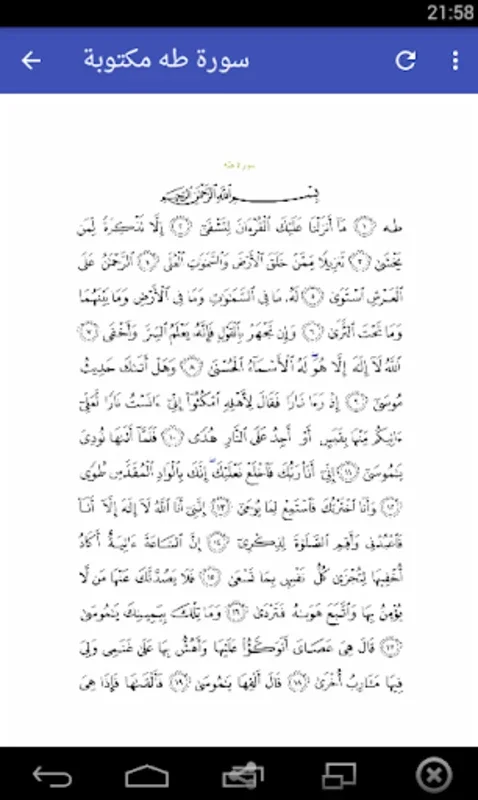 21:58
سورة طه مكتوبة
سورة طه
بِسْمِ اللَّهِ الرَّحْمَٰنِ الرَّحِيمِ
طه ١ مَآ أَنزَلْنَا عَلَيْكَ ٱلْقُرْءَانَ لِتَشْقَىٰٓ ٢ إِلَّا تَذْكِرَةً لِّمَن
يَخْشَىٰ ٣ تَنزِيلًا مِّمَّنْ خَلَقَ ٱلْأَرْضَ وَٱلسَّمَٰوَٰتِ ٱلْعُلَى ٤ ٱلرَّحْمَٰنُ عَلَى
ٱلْعَرْشِ ٱسْتَوَىٰ ٥ لَهُۥ مَا فِى ٱلسَّمَٰوَٰتِ وَمَا فِى ٱلْأَرْضِ وَمَا بَيْنَهُمَا
وَمَا تَحْتَ ٱلثَّرَىٰ ٦ وَإِن تَجْهَرْ بِٱلْقَوْلِ فَإِنَّهُۥ يَعْلَمُ ٱلسِّرَّ وَأَخْفَى ٧
ٱللَّهُ لَآ إِلَٰهَ إِلَّا هُوَ ۖ لَهُ ٱلْأَسْمَآءُ ٱلْحُسْنَىٰ ٨ وَهَلْ أَتَىٰكَ حَدِيثُ
مُوسَىٰٓ ٩ إِذْ رَءَا نَارًا فَقَالَ لِأَهْلِهِ ٱمْكُثُوٓا۟ إِنِّىٓ ءَانَسْتُ نَارًا لَّعَلِّىٓ
ءَاتِيكُم مِّنْهَا بِقَبَسٍ أَوْ أَجِدُ عَلَى ٱلنَّارِ هُدًى ١٠ فَلَمَّآ أَتَىٰهَا نُودِىَ
يَٰمُوسَىٰٓ ١١ إِنِّىٓ أَنَا۠ رَبُّكَ فَٱخْلَعْ نَعْلَيْكَ ۖ إِنَّكَ بِٱلْوَادِ ٱلْمُقَدَّسِ طُوًى
١٢ وَأَنَا ٱخْتَرْتُكَ فَٱسْتَمِعْ لِمَا يُوحَىٰٓ ١٣ إِنَّنِىٓ أَنَا ٱللَّهُ لَآ إِلَٰهَ إِلَّآ أَنَا۠
فَٱعْبُدْنِى وَأَقِمِ ٱلصَّلَوٰةَ لِذِكْرِىٓ ١٤ إِنَّ ٱلسَّاعَةَ ءَاتِيَةٌ أَكَادُ
أُخْفِيهَا لِتُجْزَىٰ كُلُّ نَفْسٍۭ بِمَا تَسْعَىٰ ١٥ فَلَا يَصُدَّنَّكَ عَنْهَا مَن لَّا
يُؤْمِنُ بِهَا وَٱتَّبَعَ هَوَىٰهُ فَتَرْدَىٰ ١٦ وَمَا تِلْكَ بِيَمِينِكَ يَٰمُوسَىٰ
١٧ قَالَ هِىَ عَصَاىَ أَتَوَكَّؤُا۟ عَلَيْهَا وَأَهُشُّ بِهَا عَلَىٰ غَنَمِى وَلِىَ
فِيهَا مَـَٔارِبُ أُخْرَىٰ ١٨ قَالَ أَلْقِهَا يَٰمُوسَىٰ ١٩ فَأَلْقَىٰهَا فَإِذَا هِىَ